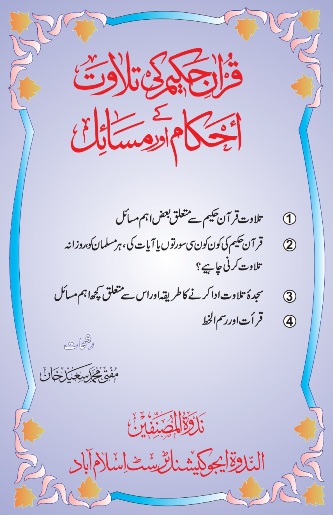 قرآن حکیم کی تلاوت
کے
احکام اور مسائل
① تلاوت قرآن حکیم سے متعلق بعض اہم مسائل
② قرآن حکیم کی کون کون سی سورتوں یا آیات کی، ہر مسلمان کو روزانہ
تلاوت کرنی چاہیے؟
③ سجدۂ تلاوت ادا کرنے کا طریقہ اور اس سے متعلق کچھ اہم مسائل
④ قرأت اور رسم الخط
رشحات
مفتی محمد سعید خان
ندوۃ المصنفین
الندوہ ایجوکیشنل ٹرسٹ اسلام آباد